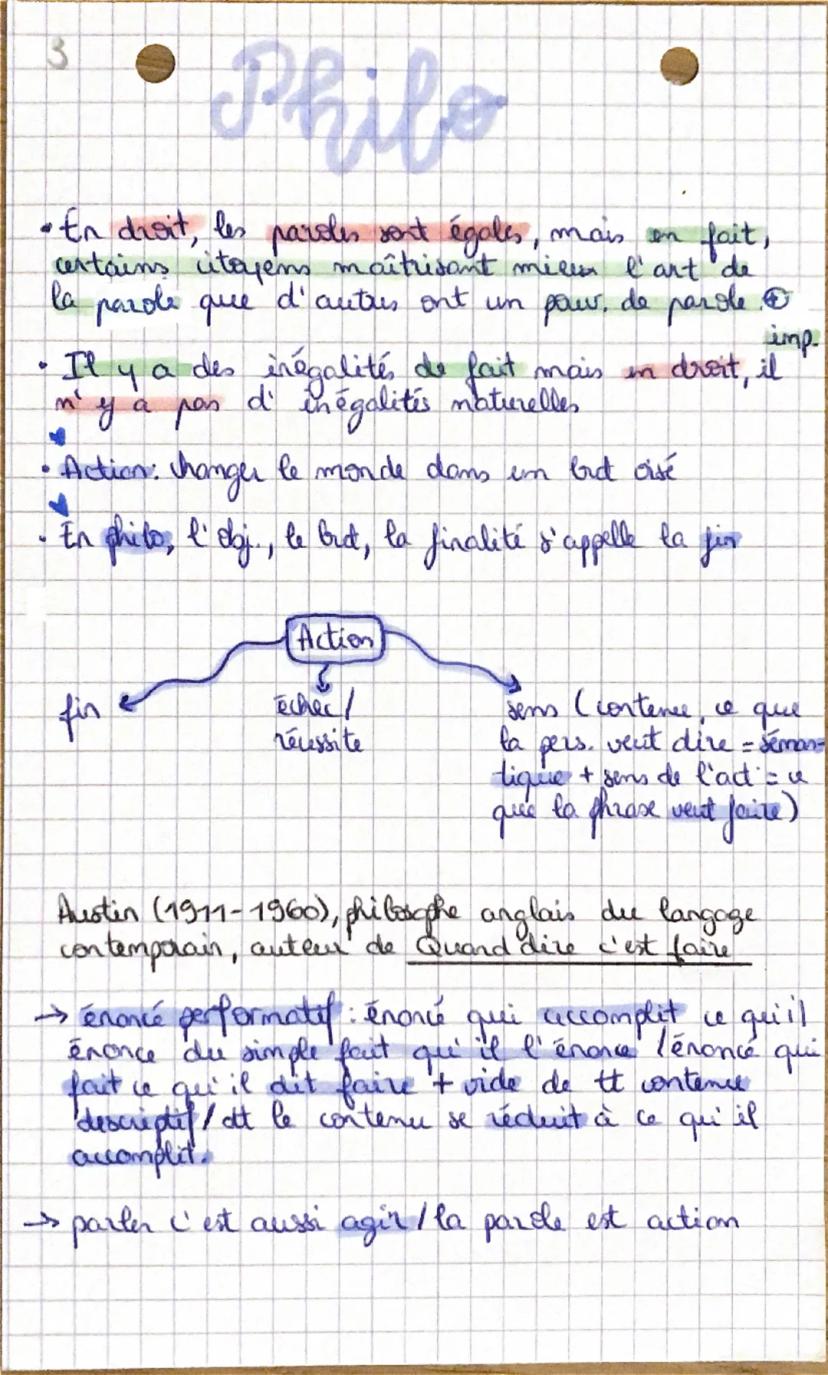 3
Philo
• En droit, les paroles sont égales, mais en fait,
certains citoyens maîtrisant mieux l'art de
la parole que d'autres ont un pouv. de parole ⊕
imp.
• Il y a des inégalités de fait mais en droit, il
n'y a pas d'inégalités naturelles
• Action: changer le monde dans un but visé
• En philo, l'obj., le but, la finalité s'appelle la fin
Action
fin
échec/
réussite
sens (contenu, ce que
la pers. veut dire = séman-
tique + sens de l'act° = ce
que la phrase veut faire)
Austin (1911-1960), philosophe anglais du langage
contemporain, auteur de Quand dire c'est faire
→ énoncé performatif : énoncé qui accomplit ce qu'il
énonce du simple fait qu'il l'énonce / énoncé qui
fait ce qu'il dit faire + vide de tt contenu
descriptif / dt le contenu se réduit à ce qu'il
accomplit.
→ parler c'est aussi agir / la parole est action